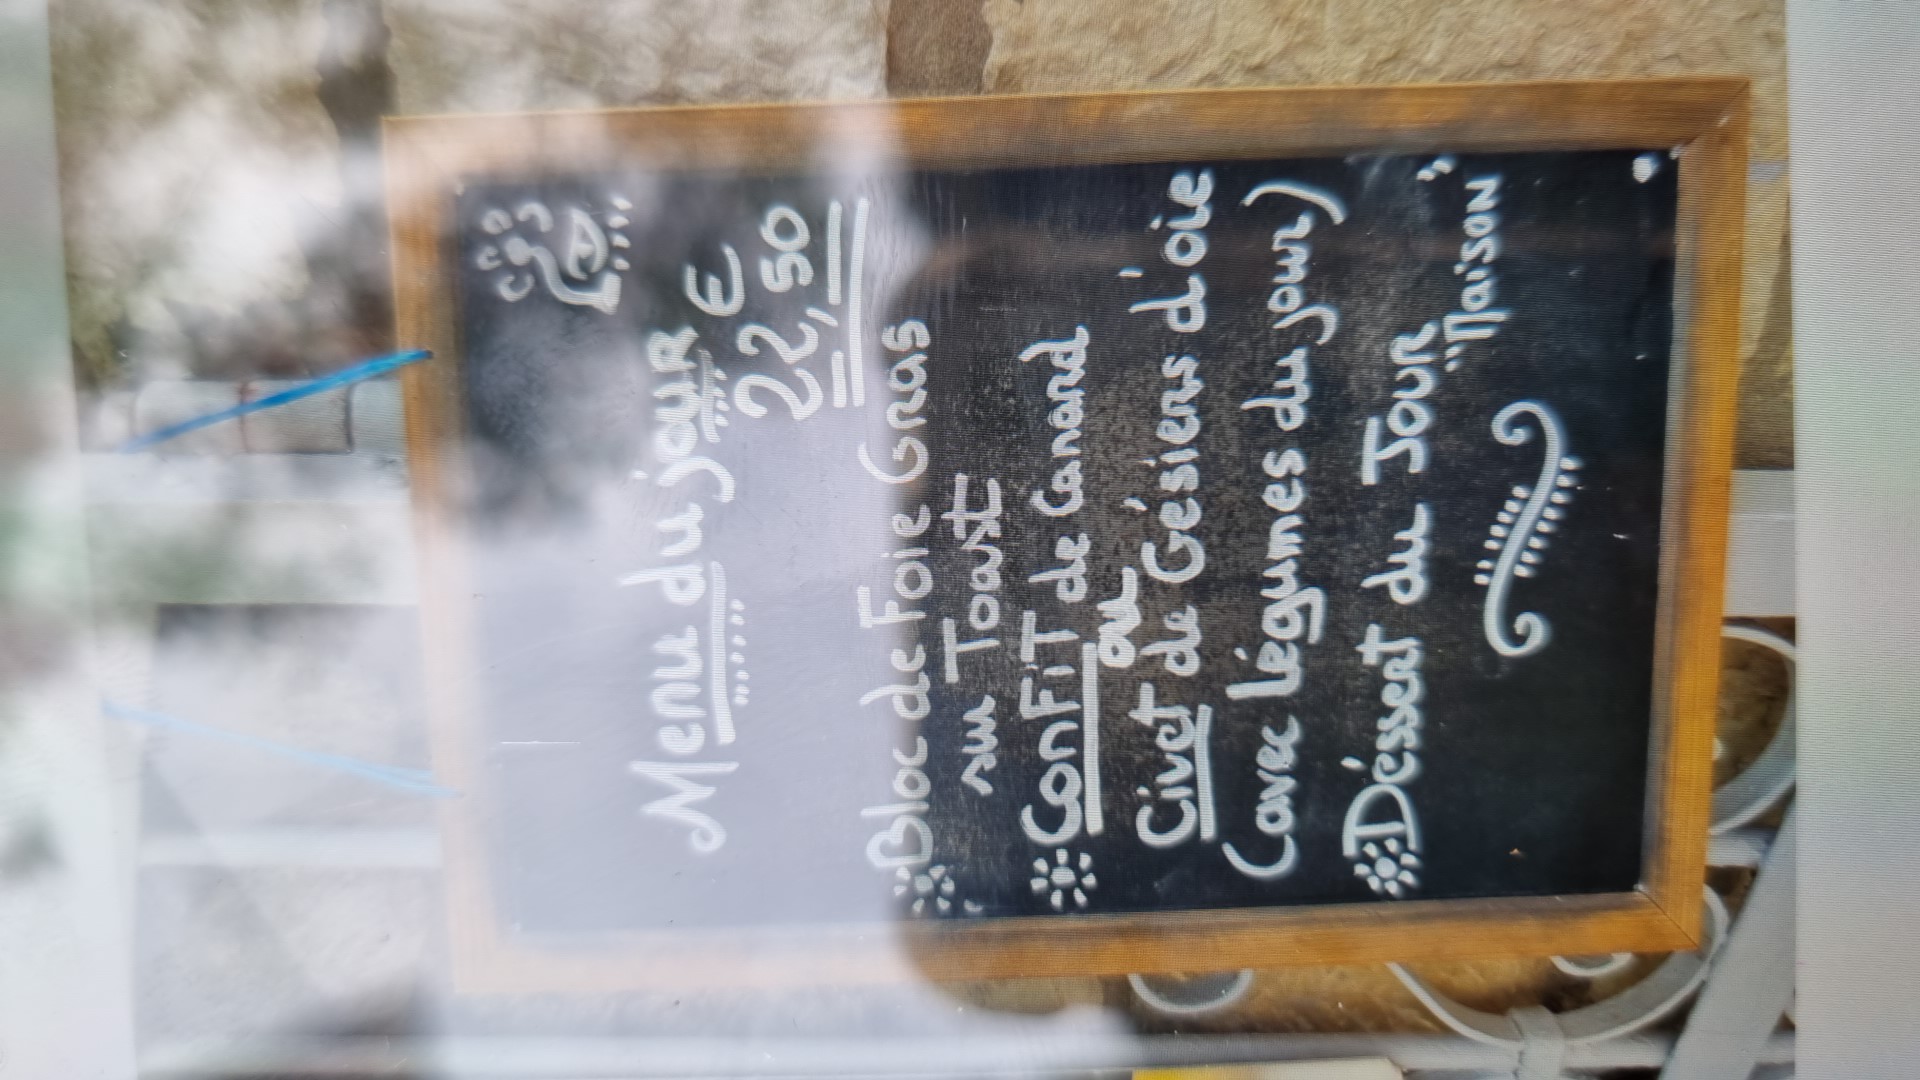 Menu du jour
22,50 €
Bloc de Foie Gras
sur Toast
ConFiT de Canard
ou
Civet de Gésiers d'oie
(avec Légumes du jour)
Déssert du JOUR
"Maison"